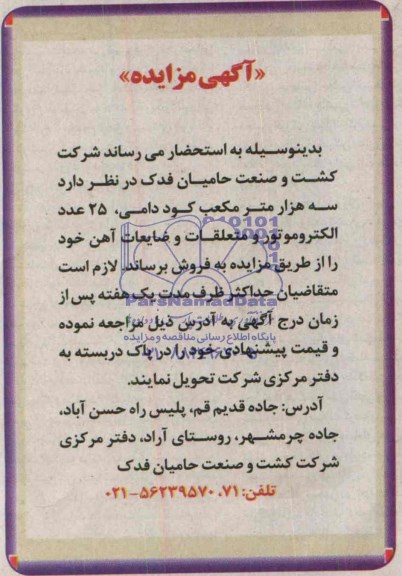 «آگهی مزایده»
بدینوسیله به استحضار می رساند شرکت
کشت و صنعت حامیان فدک در نظر دارد
سه هزار متر مکعب کود دامی، ۲۵ عدد
الکتروموتور و متعلقات و ضایعات آهن خود
را از طریق مزایده به فروش برساند. لازم است
متقاضیان حداکثر ظرف مدت یک هفته پس از
زمان درج آگهی به آدرس ذیل مراجعه نموده
و قیمت پیشنهادی خود را در پاک دربسته به
دفتر مرکزی شرکت تحویل نمایند.
آدرس: جاده قدیم قم، پلیس راه حسن آباد،
جاده چرمشهر، روستای آراد، دفتر مرکزی
شرکت کشت و صنعت حامیان فدک
تلفن: ۷۱، ۵۶۲۳۹۵۷۰-۰۲۱
ParsNamadData
پایگاه اطلاع رسانی مناقصه و مزایده